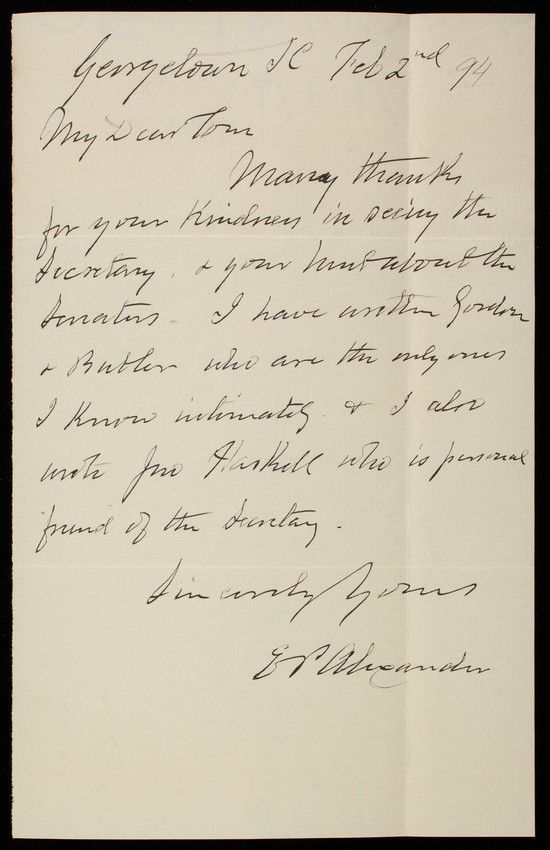 Georgetown SC Feb 2nd 94
My Dear Tom
Many thanks
for your kindness in seeing the
Secretary, & your hint about the
Senators - I have written Gordon
& Butler who are the only ones
I know intimately. & I also
wrote Jno Haskell who is personal
friend of the Secretary.
Sincerely Yours
E P Alexander